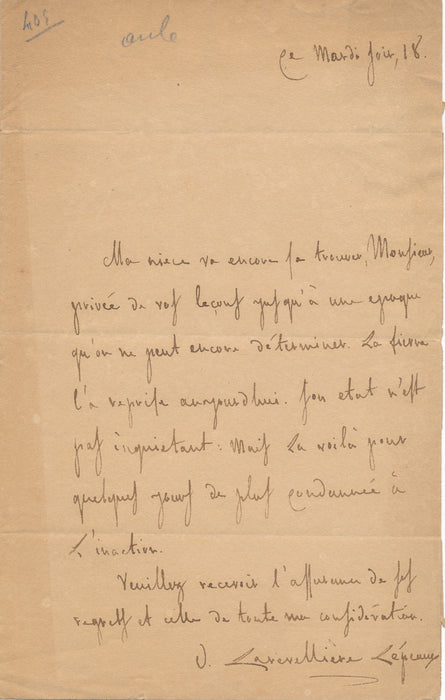 405
Ce Mardi soir, 18.
Ma niece va encore se trouver, Monsieur,
privée de vos leçons jusqu'à une epoque
qu'on ne peut encore déterminer. La fievre
l'a reprise aujourd'hui. Son etat n'est
pas inquietant : Mais La voilà pour
quelques jours de plus condamnée à
L'inaction.
Veuillez recevoir l'assurance de ses
regrets et celle de toute ma considération.
Larevellière Lépeaux